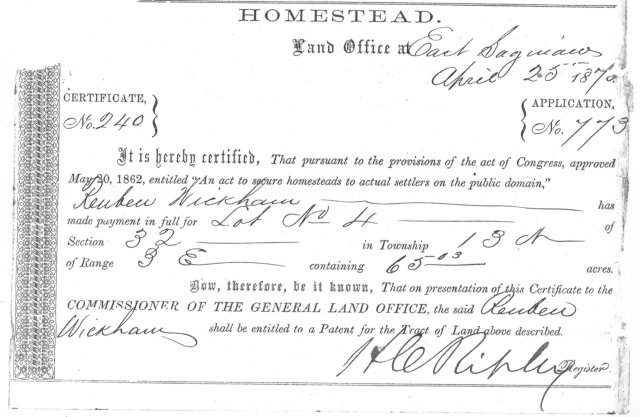 HOMESTEAD.
Land Office at East Saginaw
April 25 1870
CERTIFICATE,
No. 240
APPLICATION,
No. 773
It is hereby certified, That pursuant to the provisions of the act of Congress, approved
May 20, 1862, entitled "An act to secure homesteads to actual settlers on the public domain,"
Reuben Wickham has
made payment in full for Lot No 4 of
Section 32 in Township 13 N
of Range 3 E containing 65 03 acres.
Now, therefore, be it known, That on presentation of this Certificate to the
COMMISSIONER OF THE GENERAL LAND OFFICE, the said Reuben
Wickham shall be entitled to a Patent for the Tract of Land above described.
H C Ripley Register.